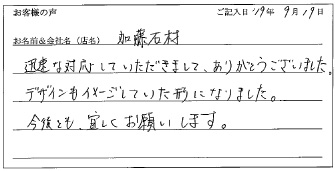 お客様の声 ご記入日 '19年 9月 19日
お名前&会社名(店名) 加藤石材
迅速な対応していただきまして、ありがとうございました。
デザインもイメージしていた形になりました。
今後とも、宜しくお願いします。